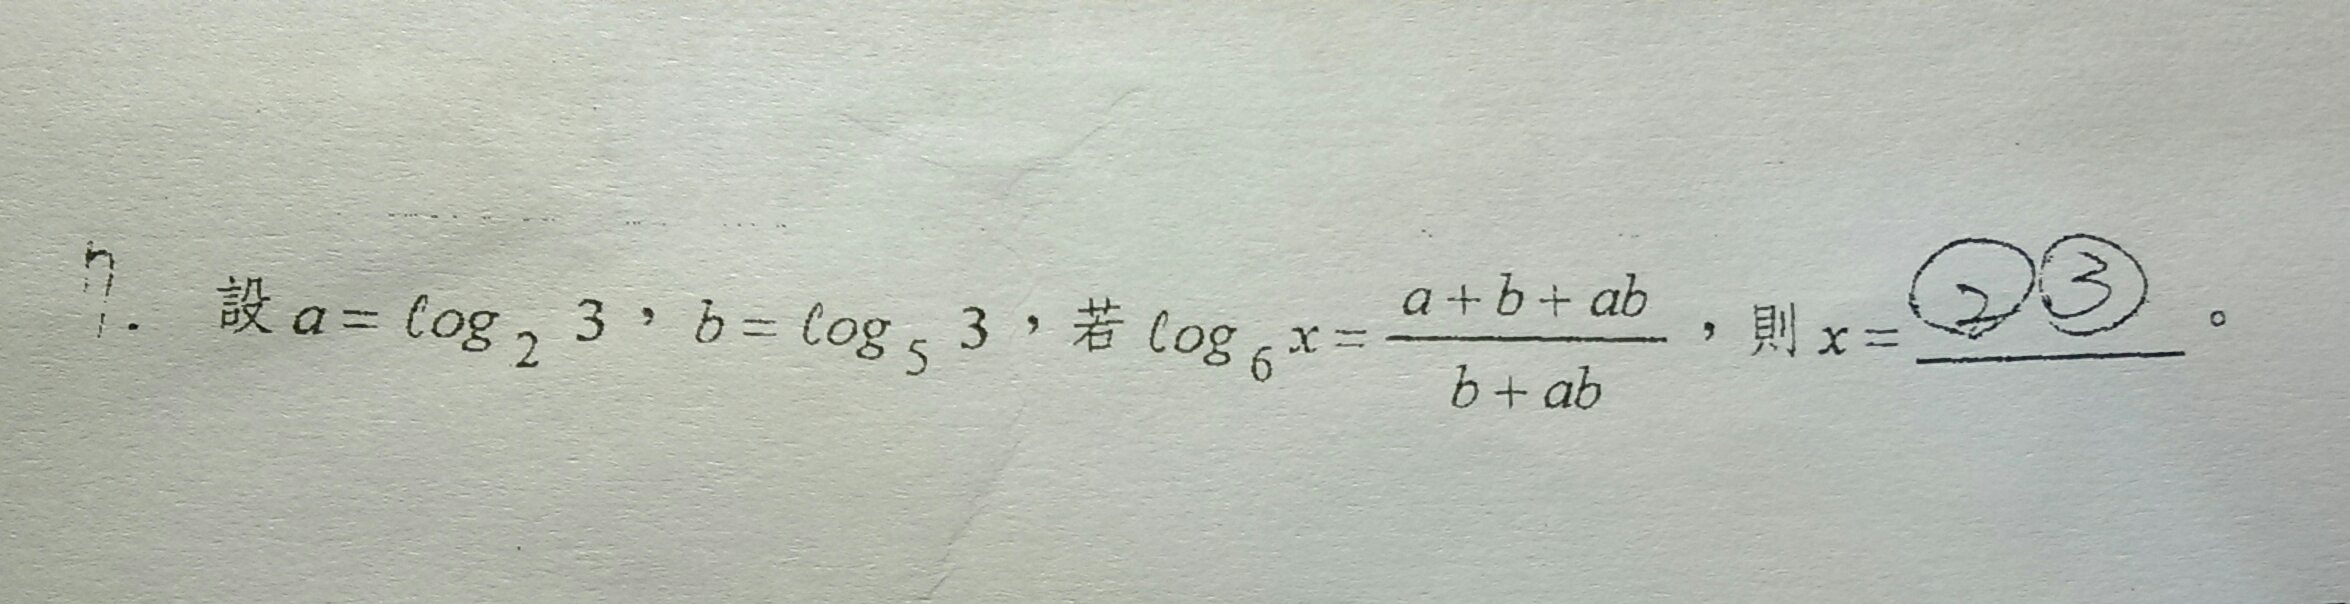 7. 設 a = log₂ 3，b = log₅ 3，若 log₆ x = (a + b + ab)/(b + ab)，則 x = ②③。